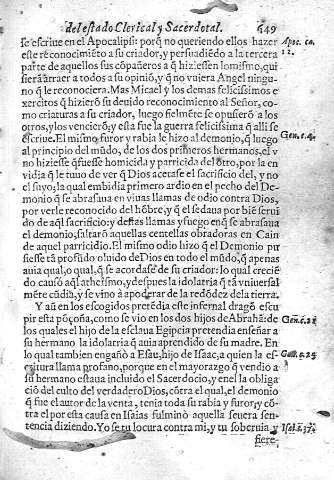 del estado Clerical y Sacerdotal. 649
se escriue en el Apocalipsi: porq̃ no queriendo ellos hazer Apoc. ca.
este recõnocimiẽto a su criador, y persuadiẽdo a la tercera 12.
parte de aquellos sus cõpañeros a q̃ hiziessen lo mismo, qui
siera atraer a todos a su opiniõ, y q̃ no vuiera Angel ningu-
no q̃ le reconociera. Mas Micael y los demas felicissimos e
xercitos q̃ hizierõ su deuido reconocimiento al Señor, co-
mo criaturas a su criador, luego se opusierõ a los
otros, y los vencierõ; y esta fue la guerra felicissima q̃ alli se
escriue. El mismo furor y rabia le hizo al demonio, q̃ luego Gen. c. 4.
al principio del mũdo, de los dos primeros hermanos, el v-
no hiziesse q̃ fuesse homicida y parricida del otro, por la en
uidia q̃ le tuuo de ver q̃ Dios acetase el sacrificio del, y no
el suyo; la qual embidia primero ardio en el pecho del De-
monio q̃ se abrasaua en viuas llamas de odio contra Dios,
por verle reconocido del hõbre, y q̃ el se daua por biẽ serui
do de aq̃l sacrificio; y destas llamas y fuego en q̃ se abrasaua
el demonio, saltarõ aquellas centellas abradoras en Cain
de aquel parricidio. El mismo odio hizo q̃ el Demonio pu
siesse tã profũdo oluido de Dios en todo el mũdo, q̃ apenas
auia qual, o qual, q̃ se acordase de su criador: lo qual crecie
do causò aq̃l atheismo, y despues la idolatria q̃ tã vniuersal
mẽte cũdia, y se vino à apoderar de la redõdez de la tierra.
Y aũ en los escogidos pretẽdia este infernal dragõ escu
pir esta põçoña, como se vio en los dos hijos de Abrahã de Gen. c. 21
los quales el hijo de la esclaua Egipcia pretendia enseñar a
su hermano la idolatria q̃ auia aprendido de su madre. En
lo qual tambien engaño a Esau, hijo de Isaac, a quien la es- Gen. c. 25
critura llama profano, porque en el mayorazgo q̃ vendio a
su hermano estaua incluido el Sacerdocio, y en el la obliga
ciõ del culto del verdadero Dios, cõtra el qual, el demonio
q̃ fue el autor de la venta, tenia toda su rabia y furor; y cõ-
tra el por esta causa en Isaias fulminò aquella seuera sen-
tencia diziendo. Yo se tu locura contra mi, y tu soberuia y Isai. c. 37.
fiere-